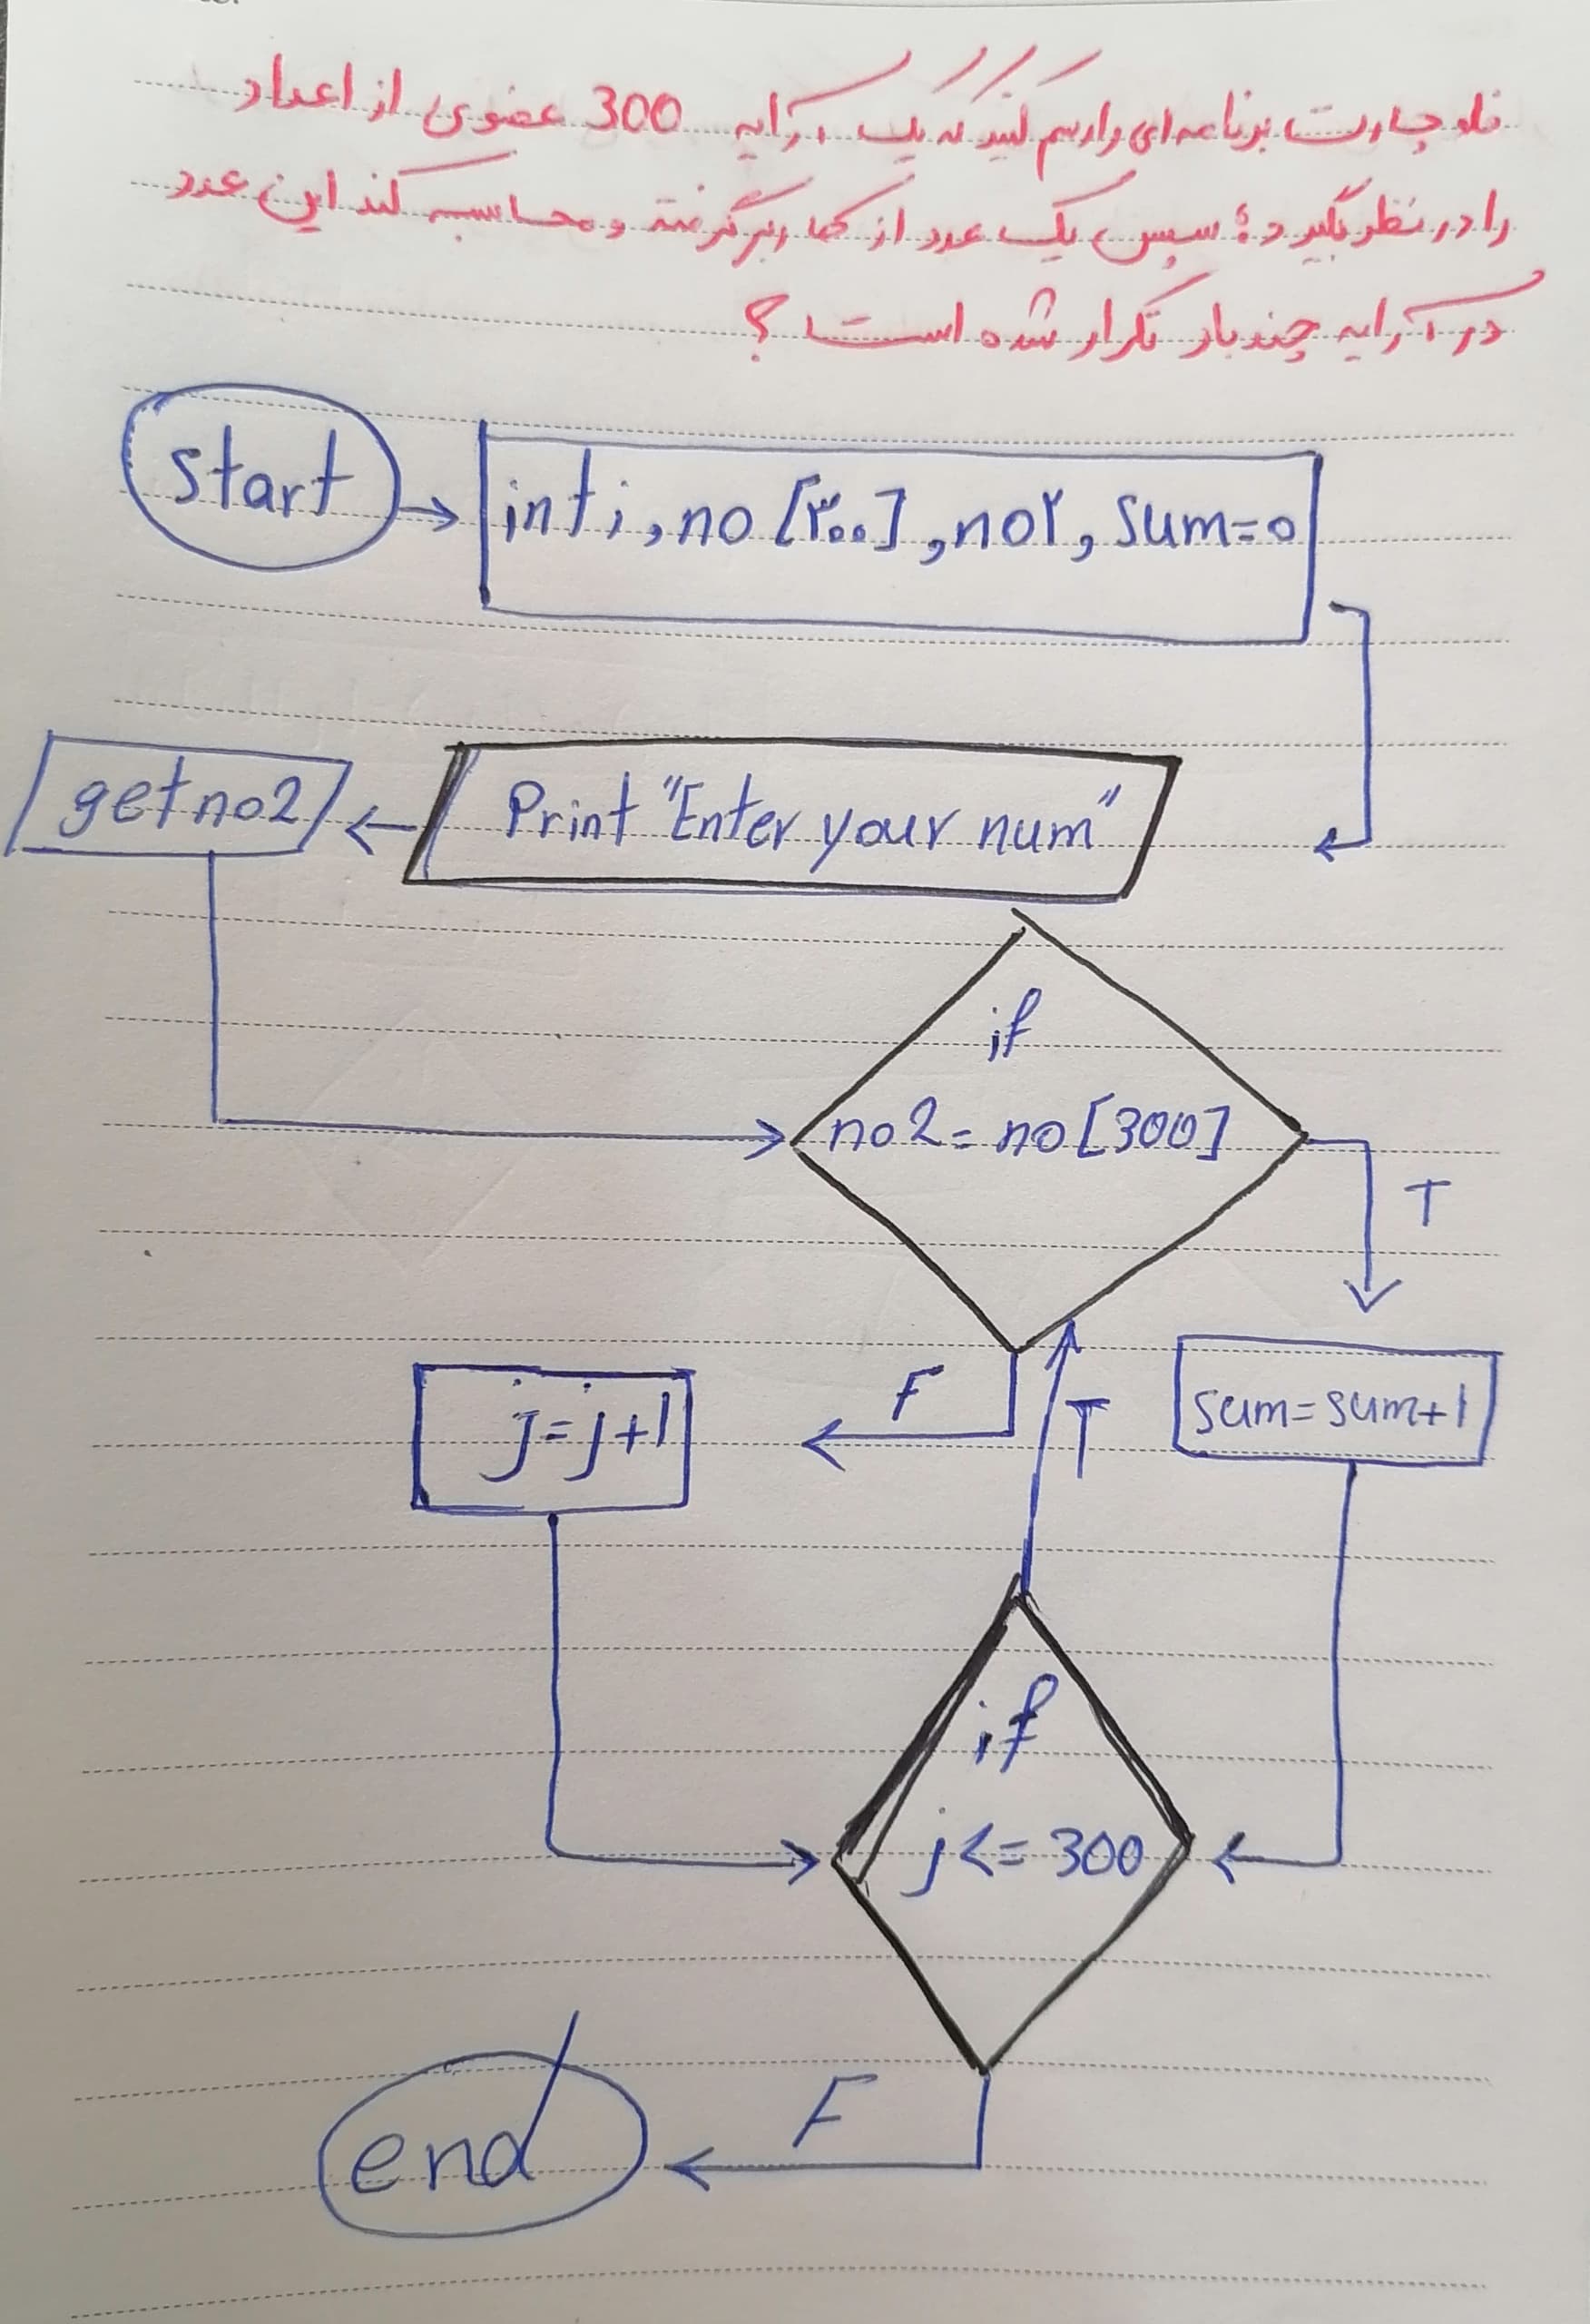 فلوچارت برنامه‌ای را رسم کنید که یک آرایه 300 عضوی از اعداد
را در نظر بگیرد؛ سپس یک عدد از کاربر گرفته و محاسبه کند این عدد
در آرایه چند بار تکرار شده است؟
start
int j, no [۳۰۰], no۲, sum=0
Print "Enter your num"
get no2
if
no2= no[300]
T
F
j=j+1
T
sum=sum+1
if
j<= 300
F
end